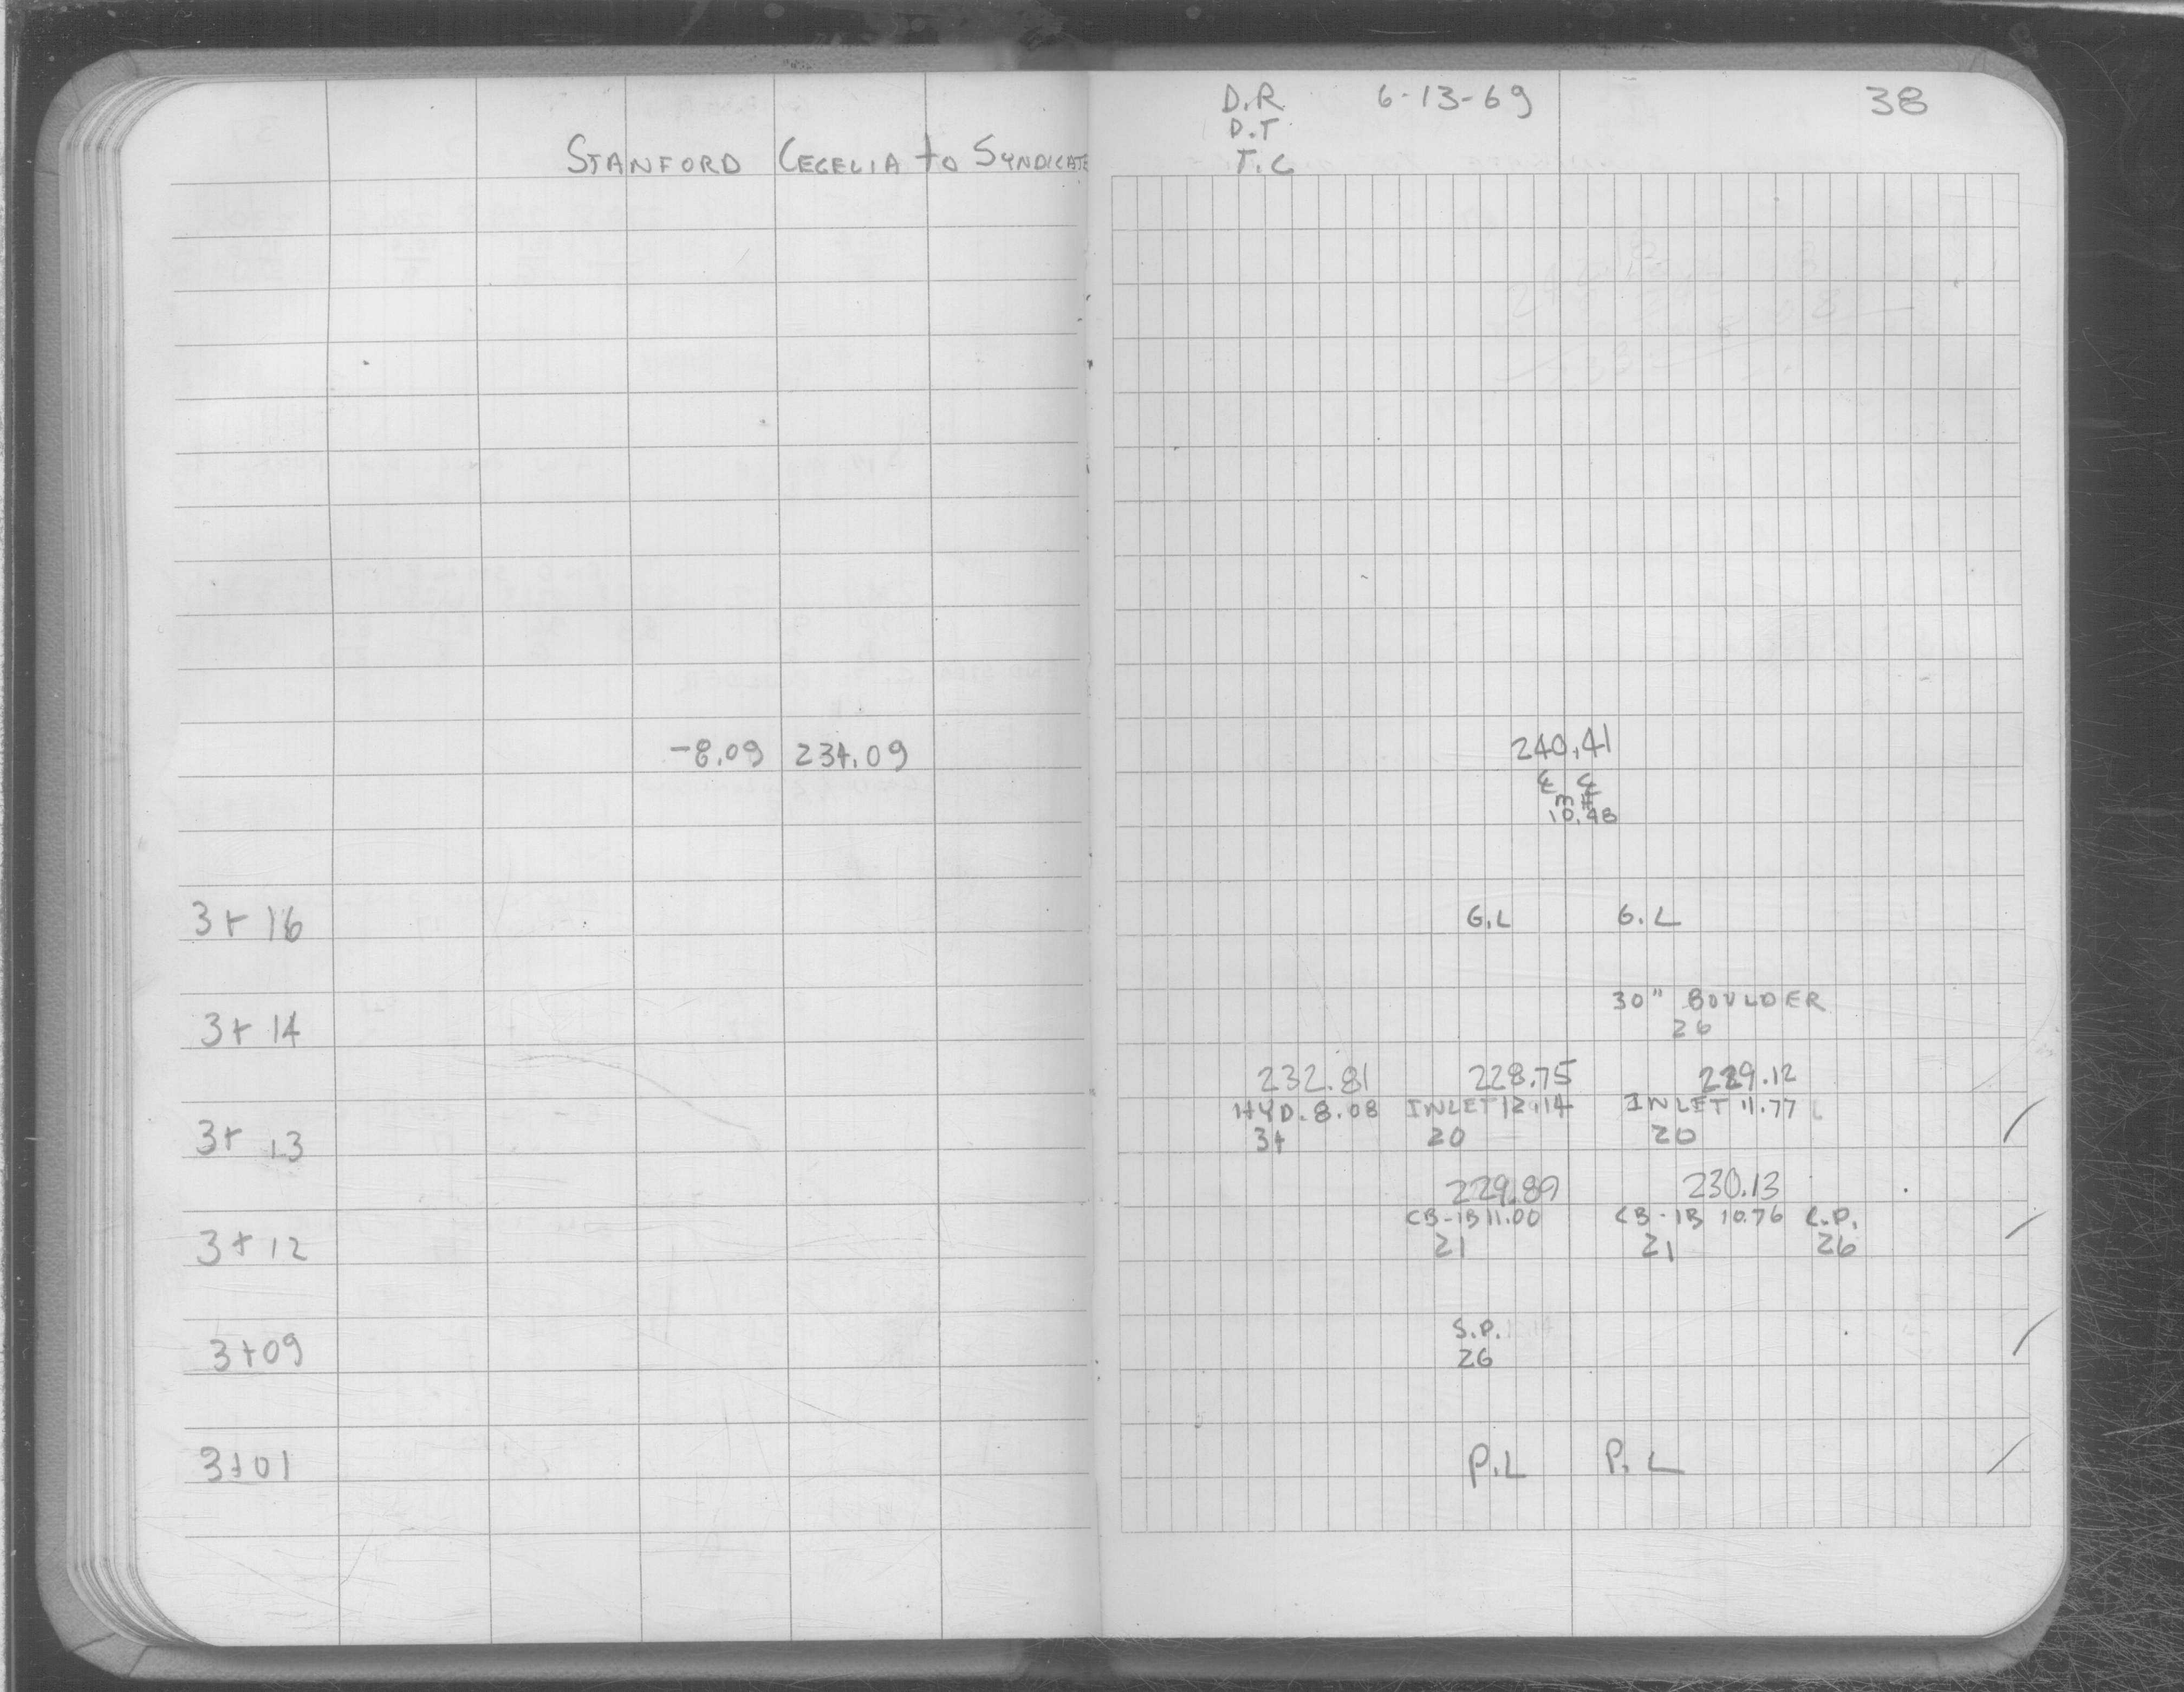 D.R 6-13-69 38
D.T
STANFORD CECELIA to SYNDICATE T.C
-8.09 234.09 240.41
℄ ℄
MH
10.48
3+16 G.L G.L
30" BOULDER
3+14 26
232.81 228.75 229.12
HYD. 8.08 INLET 12.14 INLET 11.77
3+13 34 20 20
229.89 230.13
CB-1B 11.00 CB-1B 10.76 L.P.
3+12 21 21 26
S.P.
3+09 26
3+01 P.L P.L